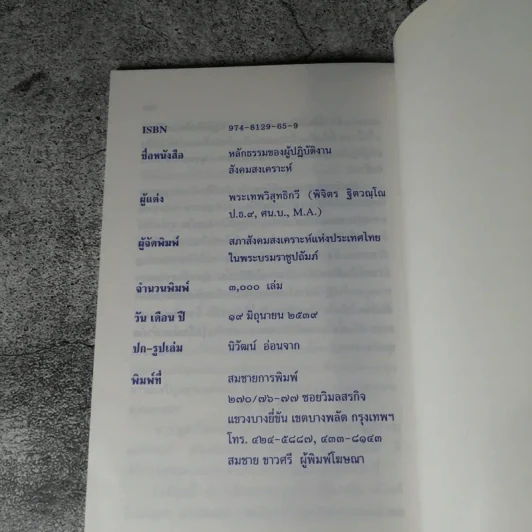 ISBN 974-8129-65-9
ชื่อหนังสือ หลักธรรมของผู้ปฏิบัติงาน
สังคมสงเคราะห์
ผู้แต่ง พระเทพวิสุทธิกวี (พิจิตร ฐิตวณฺโณ
ป.ธ.๙, ศน.บ., M.A.)
ผู้จัดพิมพ์ สภาสังคมสงเคราะห์แห่งประเทศไทย
ในพระบรมราชูปถัมภ์
จำนวนพิมพ์ ๓,๐๐๐ เล่ม
วัน เดือน ปี ๑๙ มิถุนายน ๒๕๓๙
ปก-รูปเล่ม นิวัฒน์ อ่อนจาก
พิมพ์ที่ สมชายการพิมพ์
๒๗๐/๗๖-๗๗ ซอยวิมลสรกิจ
แขวงบางยี่ขัน เขตบางพลัด กรุงเทพฯ
โทร. ๔๒๔-๕๘๘๗, ๔๓๓-๘๑๔๓
สมชาย ชาวศรี ผู้พิมพ์โฆษณา